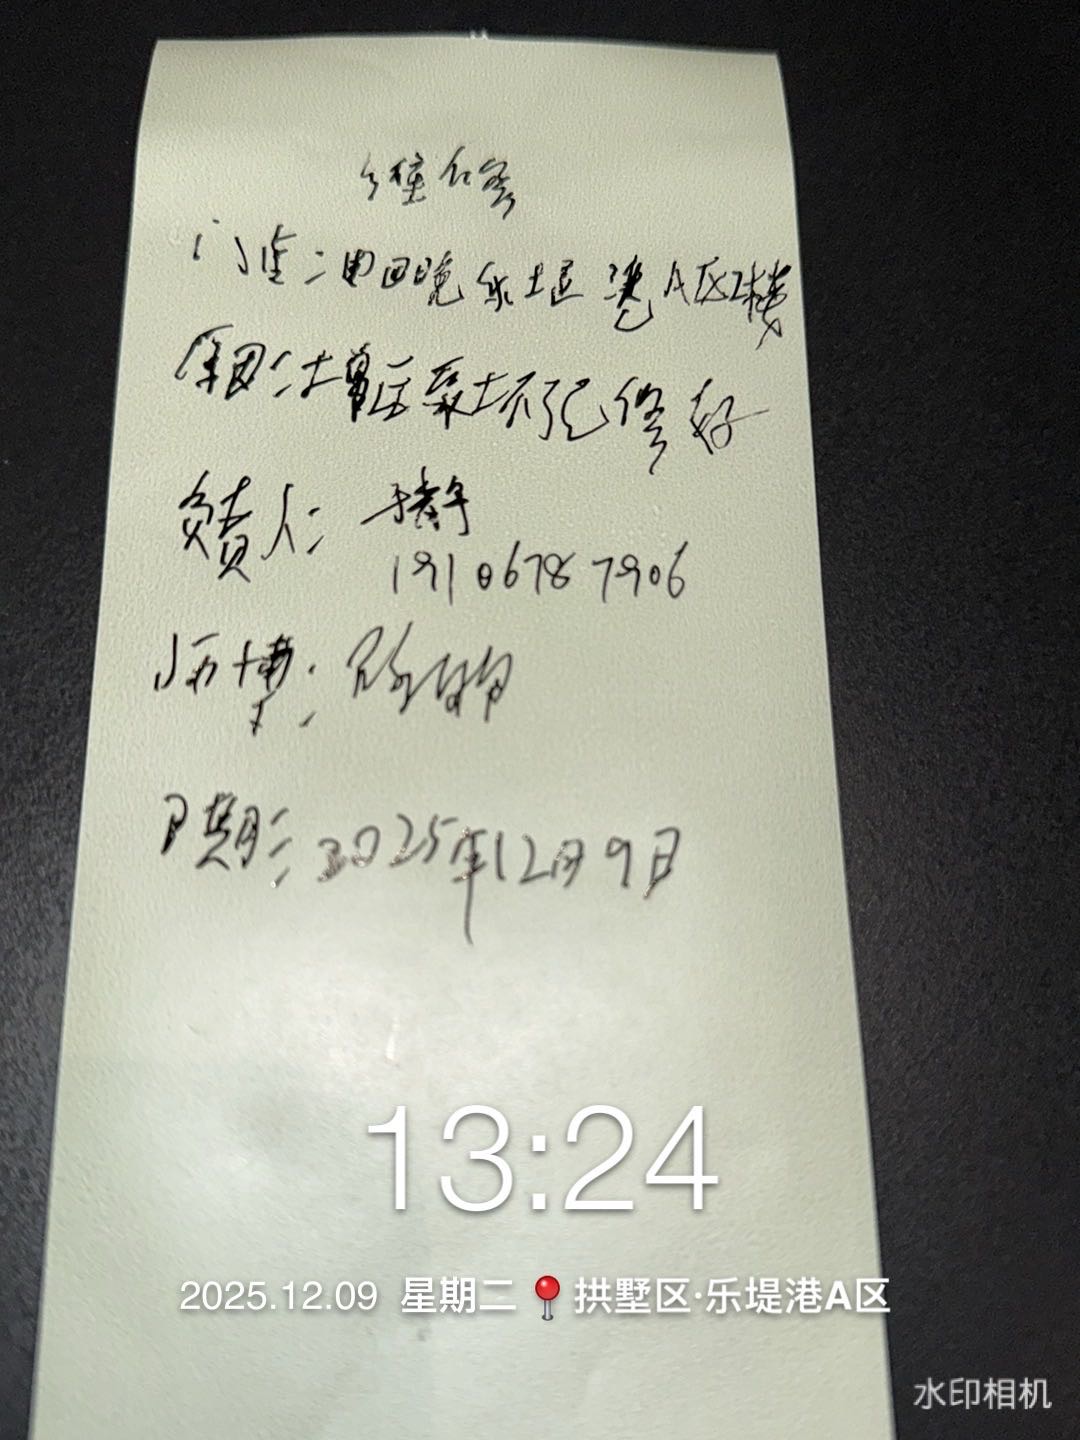 维修
门店:田田晚乐堤港A区2楼
原因:增压泵坏了已修好
负责人:
19106787906
师傅:
日期:2025年12月9日
13:24
2025.12.09 星期二 拱墅区·乐堤港A区
水印相机